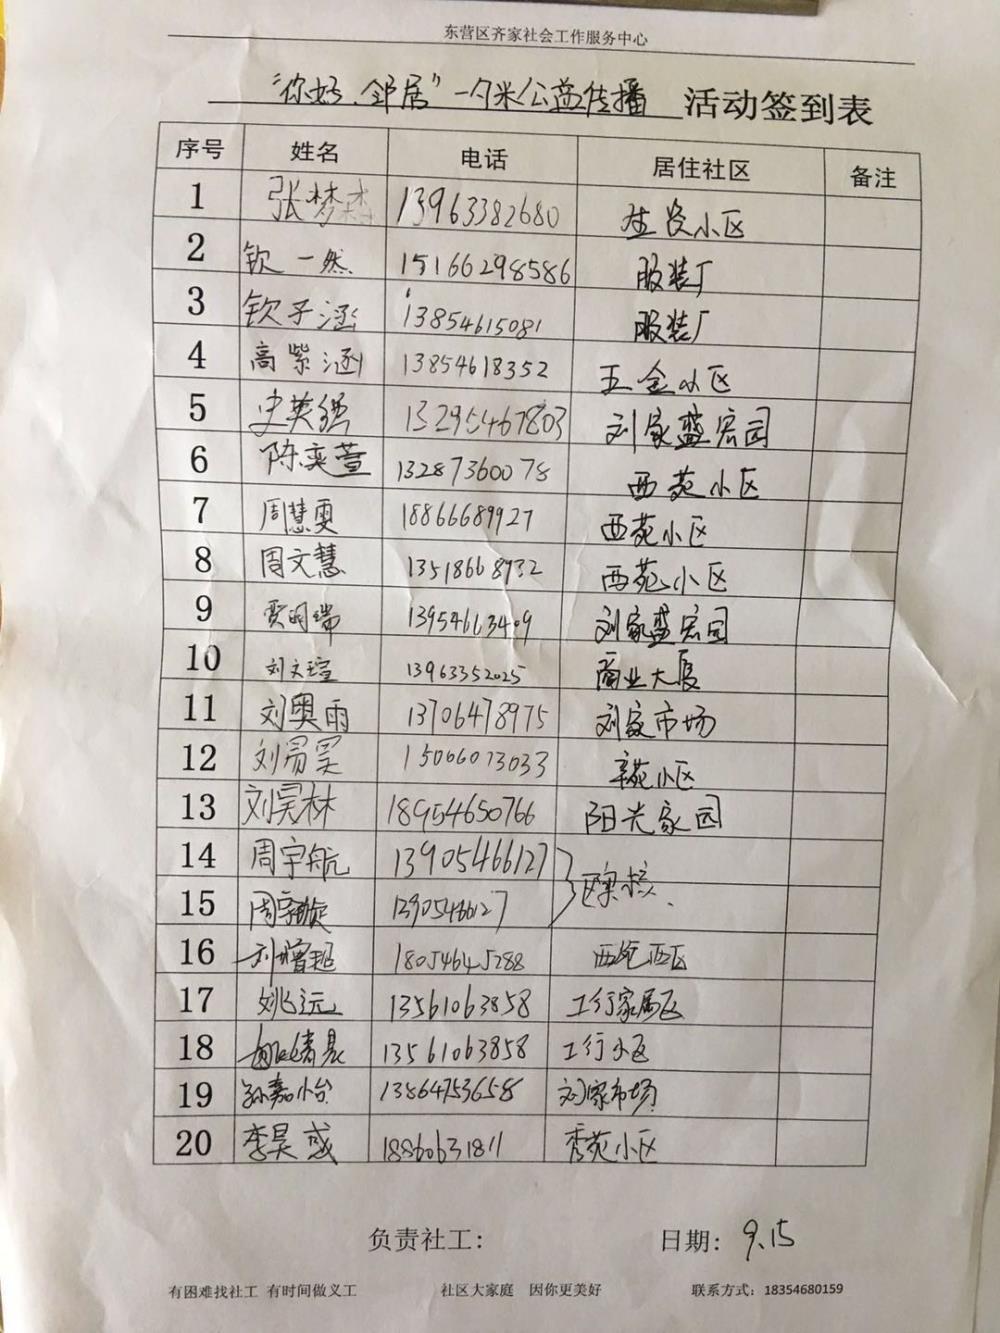 东营区齐家社会工作服务中心
“你好.邻居”一夕米公益传播 活动签到表
序号 姓名 电话 居住社区 备注
1 张梦森 13963382680 小区
2 钦一然 15166298586 服装厂
3 钦子涵 13854615081 服装厂
4 高紫涵 13854618352 五金小区
5 史英强 13295467803 刘家盛宏园
6 陈奕萱 13287360078 西苑小区
7 周慧雯 18866689927 西苑小区
8 周文慧 13518668932 西苑小区
9 贾明瑞 13954663409 刘家盛宏园
10 刘文瑄 13963352025 商业大厦
11 刘奥雨 13706478975 刘家市场
12 刘易昊 15066073033 辛苑小区
13 刘昊林 18954650766 阳光家园
14 周宇航 13905466127
15 周 13905466127
16 刘增超 18054645288 西苑西区
17 姚远 13561063858 工行家属区
18 姚 13561063858 工行小区
19 孙嘉 13864753658 刘家市场
20 李昊彧 18860631811 秀苑小区
负责社工： 日期：9.15
有困难找社工 有时间做义工 社区大家庭 因你更美好 联系方式：18354680159